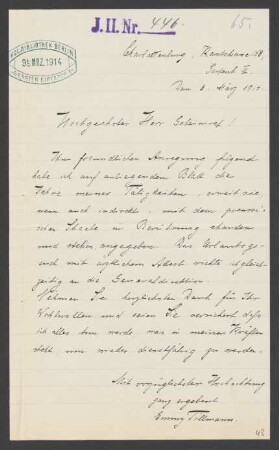 J. II. Nr. 446.
65.
KGL. BIBLIOTHEK BERLIN
9. MRZ. 1914
Charlottenburg, Kantstrasse
Den 8. März 191
Hochgeehrter Herr Geheimrat!
Ihrer freundlichen Anregung folgend
habe ich auf anliegendem Blatt die
Jahre meiner Tätigkeiten, soweit sie,
wenn auch indirekt, mit dem preussi-
schen Staate in Berührung standen
und stehen angegeben. Das Urlaubsge-
such mit ärztlichem Attest richte ich gleich-
zeitig an die Generaldirektion.
Nehmen Sie herzlichsten Dank für Ihr
Wohlwollen und seien Sie versichert dass
ich alles tun werde, was in meinen Kräften
steht um wieder dienstfähig zu werden.
Mit vorzüglichster Hochachtung
ganz ergebenst
Emmy Tillmann.